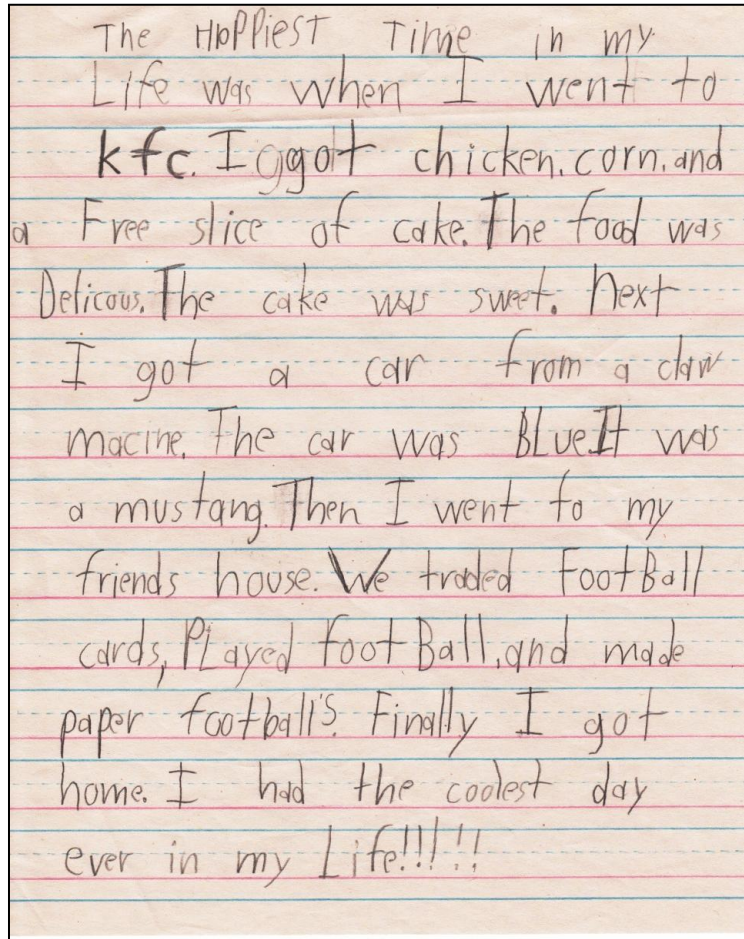 The HaPPiest Time in my
Life was when I went to
kfc. I ggot chicken, corn, and
a Free slice of cake. The food was
Delicous. The cake was sweet. next
I got a car from a claw
macine. The car was BLue. It was
a mustang. Then I went to my
friends house. We traded FootBall
cards, PLayed footBall, and made
paper football's. Finally I got
home. I had the coolest day
ever in my Life!!!!!